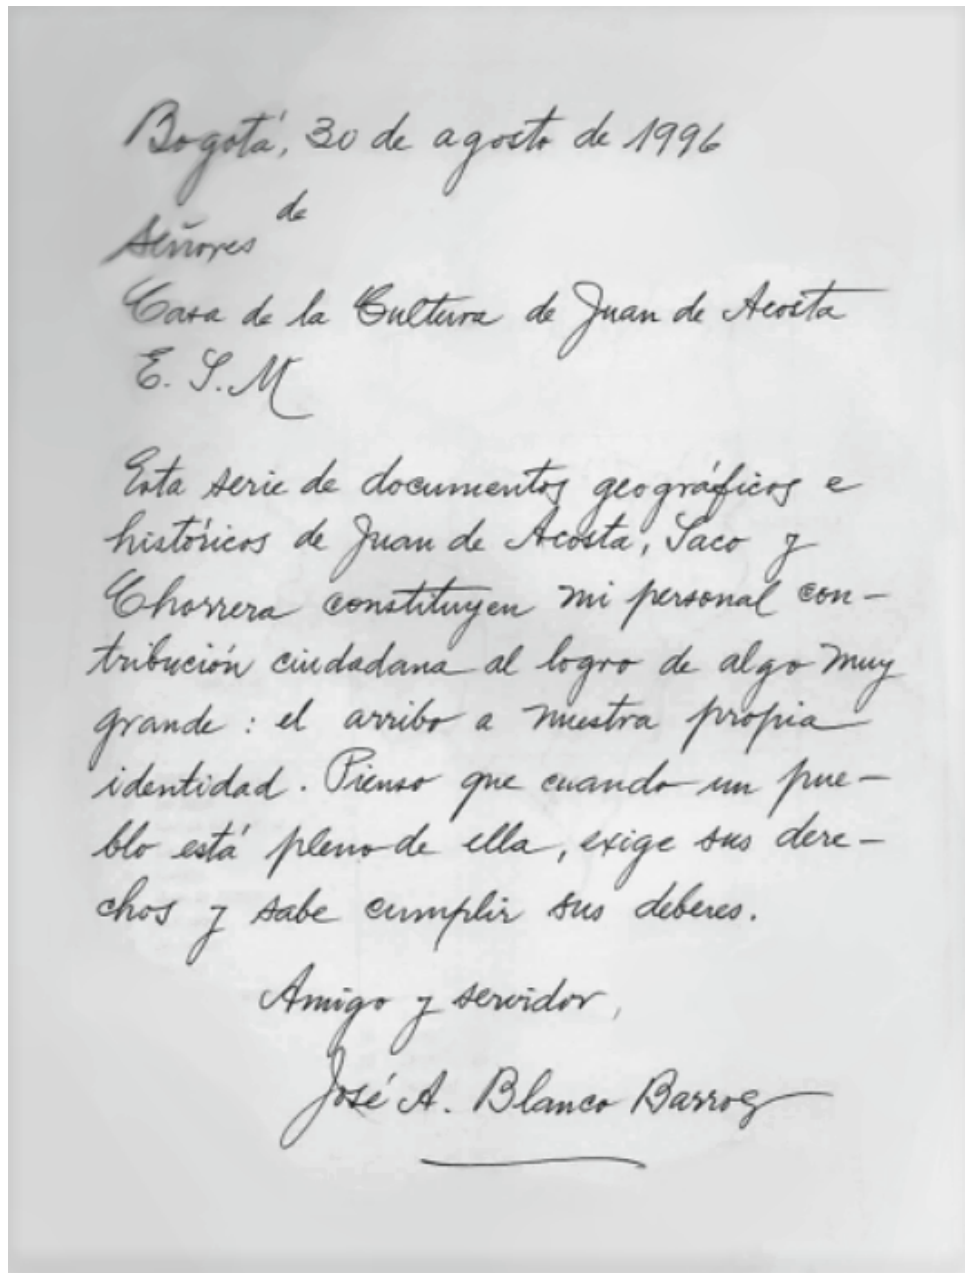 Bogotá, 30 de agosto de 1996
de
Señores
Casa de la Cultura de Juan de Acosta
E. S. M
Esta serie de documentos geográficos e
históricos de Juan de Acosta, Saco y
Chorrera constituyen mi personal con-
tribución ciudadana al logro de algo muy
grande: el arribo a nuestra propia
identidad. Pienso que cuando un pue-
blo está pleno de ella, exige sus dere-
chos y sabe cumplir sus deberes.
Amigo y servidor,
José A. Blanco Barros